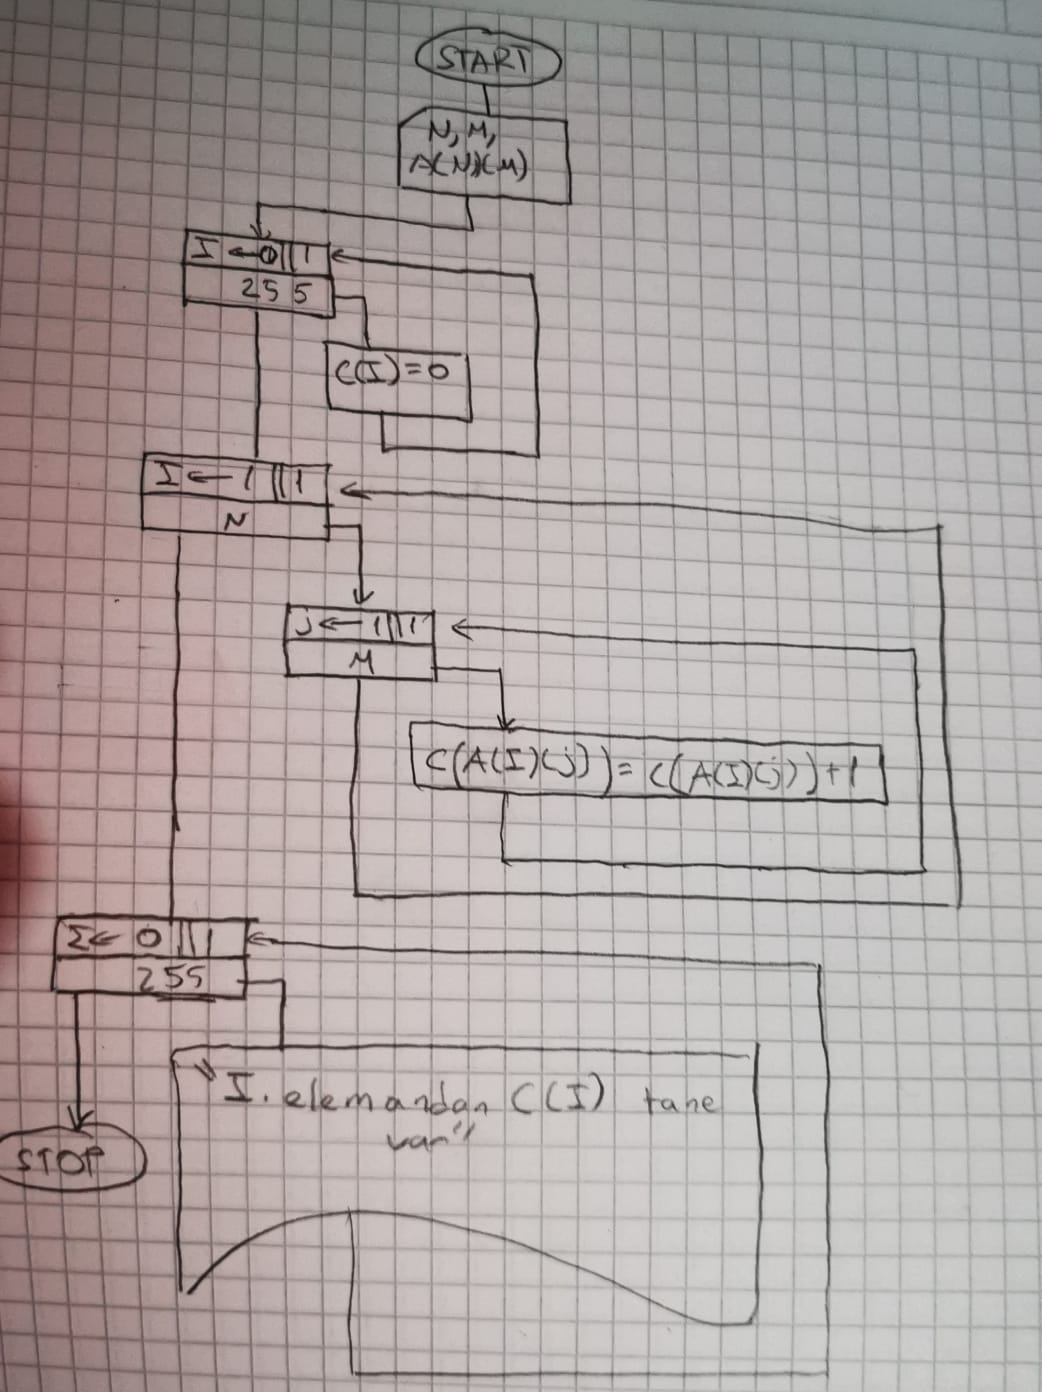 START
N, M,
A(N)(M)
I ← 0 ||| 1
255
C(I) = 0
I ← 1 ||| 1
N
j ← 1 ||| 1
M
C(A(I)(j)) = C((A(I)(j))) + 1
I ← 0 ||| 1
255
"I. elemandan C(I) tane
var"
STOP